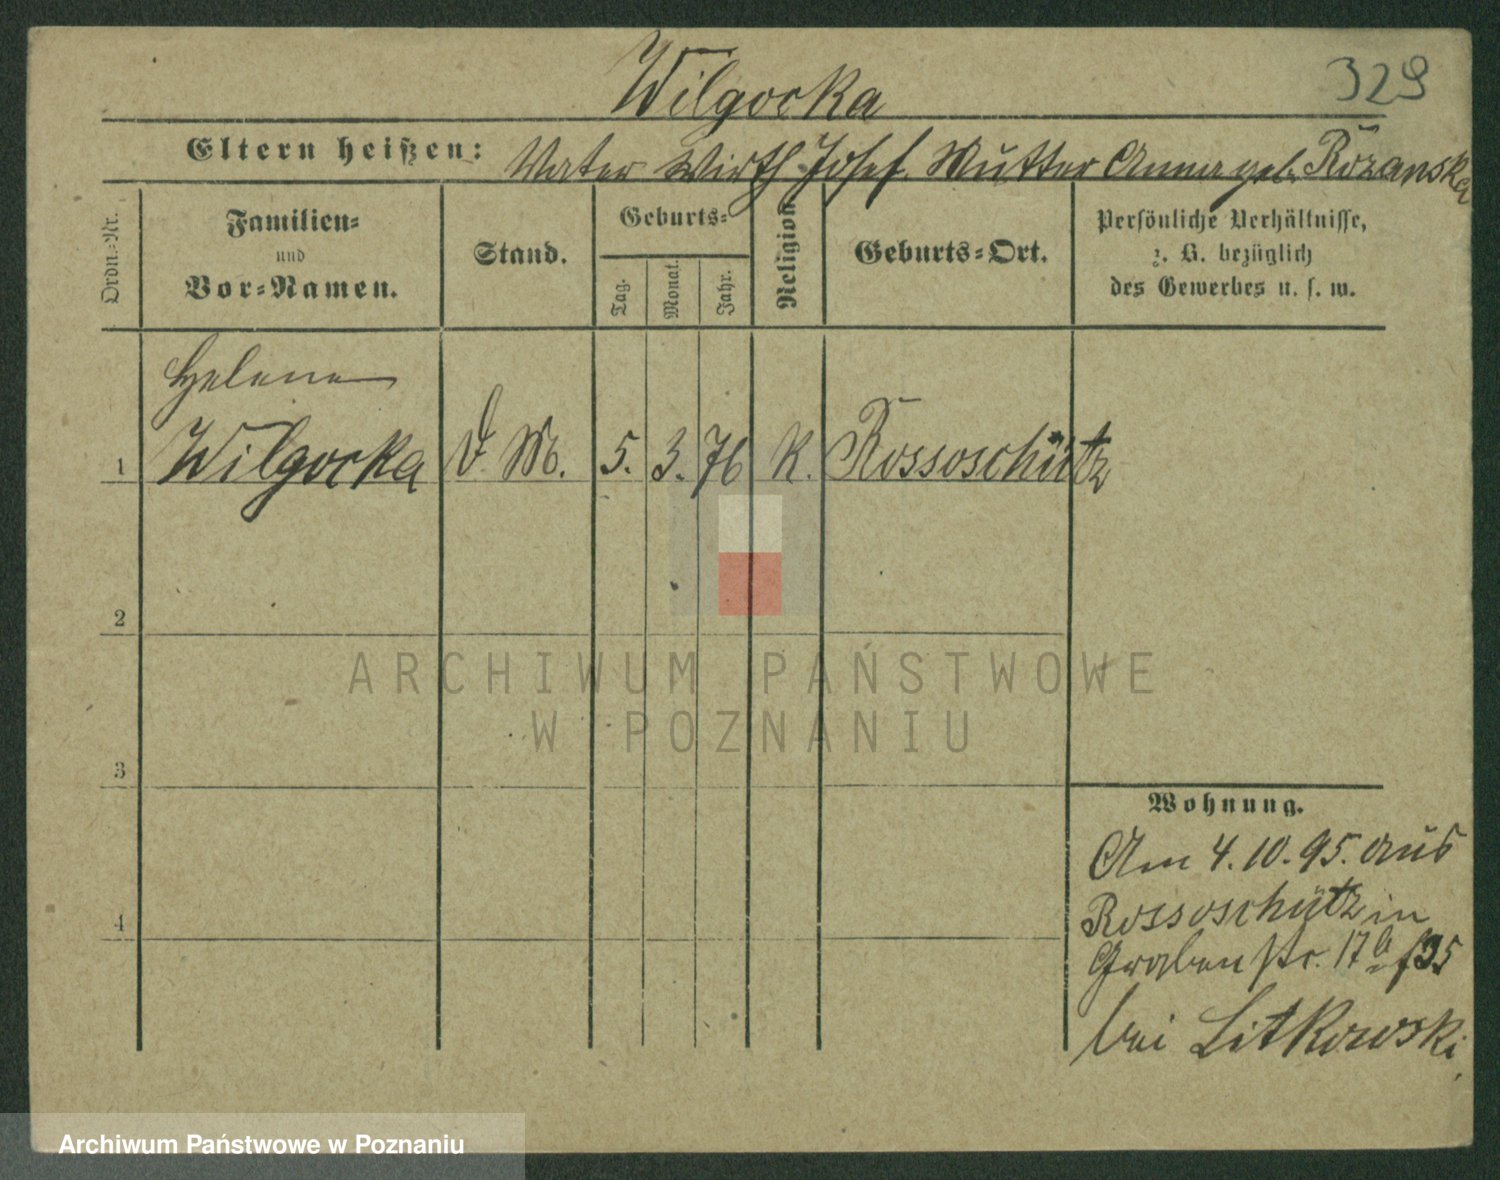 Wilgocka
329
Eltern heißen: Vater Wirth Josef. Mutter Anna geb. Rózanska
Ordn.-Nr.
Familien-
und
Vor-Namen.
Stand.
Geburts-
Tag.
Monat.
Jahr.
Religion
Geburts-Ort.
Persönliche Verhältnisse,
z. B. bezüglich
des Gewerbes u. s. w.
Helene
1 Wilgocka D. M. 5. 3. 76 K. Rossoschütz
2
ARCHIWUM PAŃSTWOWE
W POZNANIU
3
Wohnung.
Am 4.10.95. aus
4
Rossoschütz in
Grabenstr. 17
bei Litkowski
Archiwum Państwowe w Poznaniu